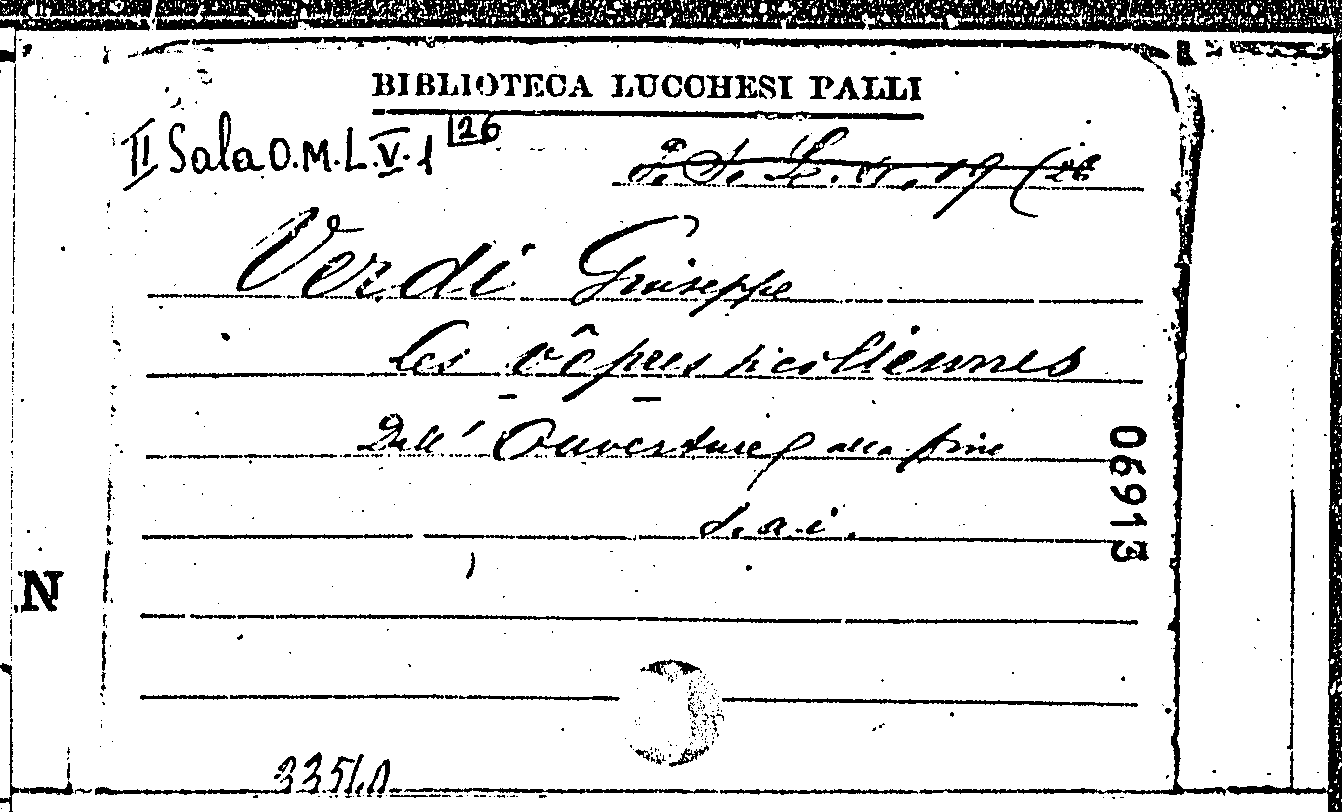 BIBLIOTECA LUCCHESI PALLI
II Sala O.M.L.V.1 26
Verdi Giuseppe
les vêpres siciliennes
Dell' Ouverture alla fine
s.a.i.
06913
N